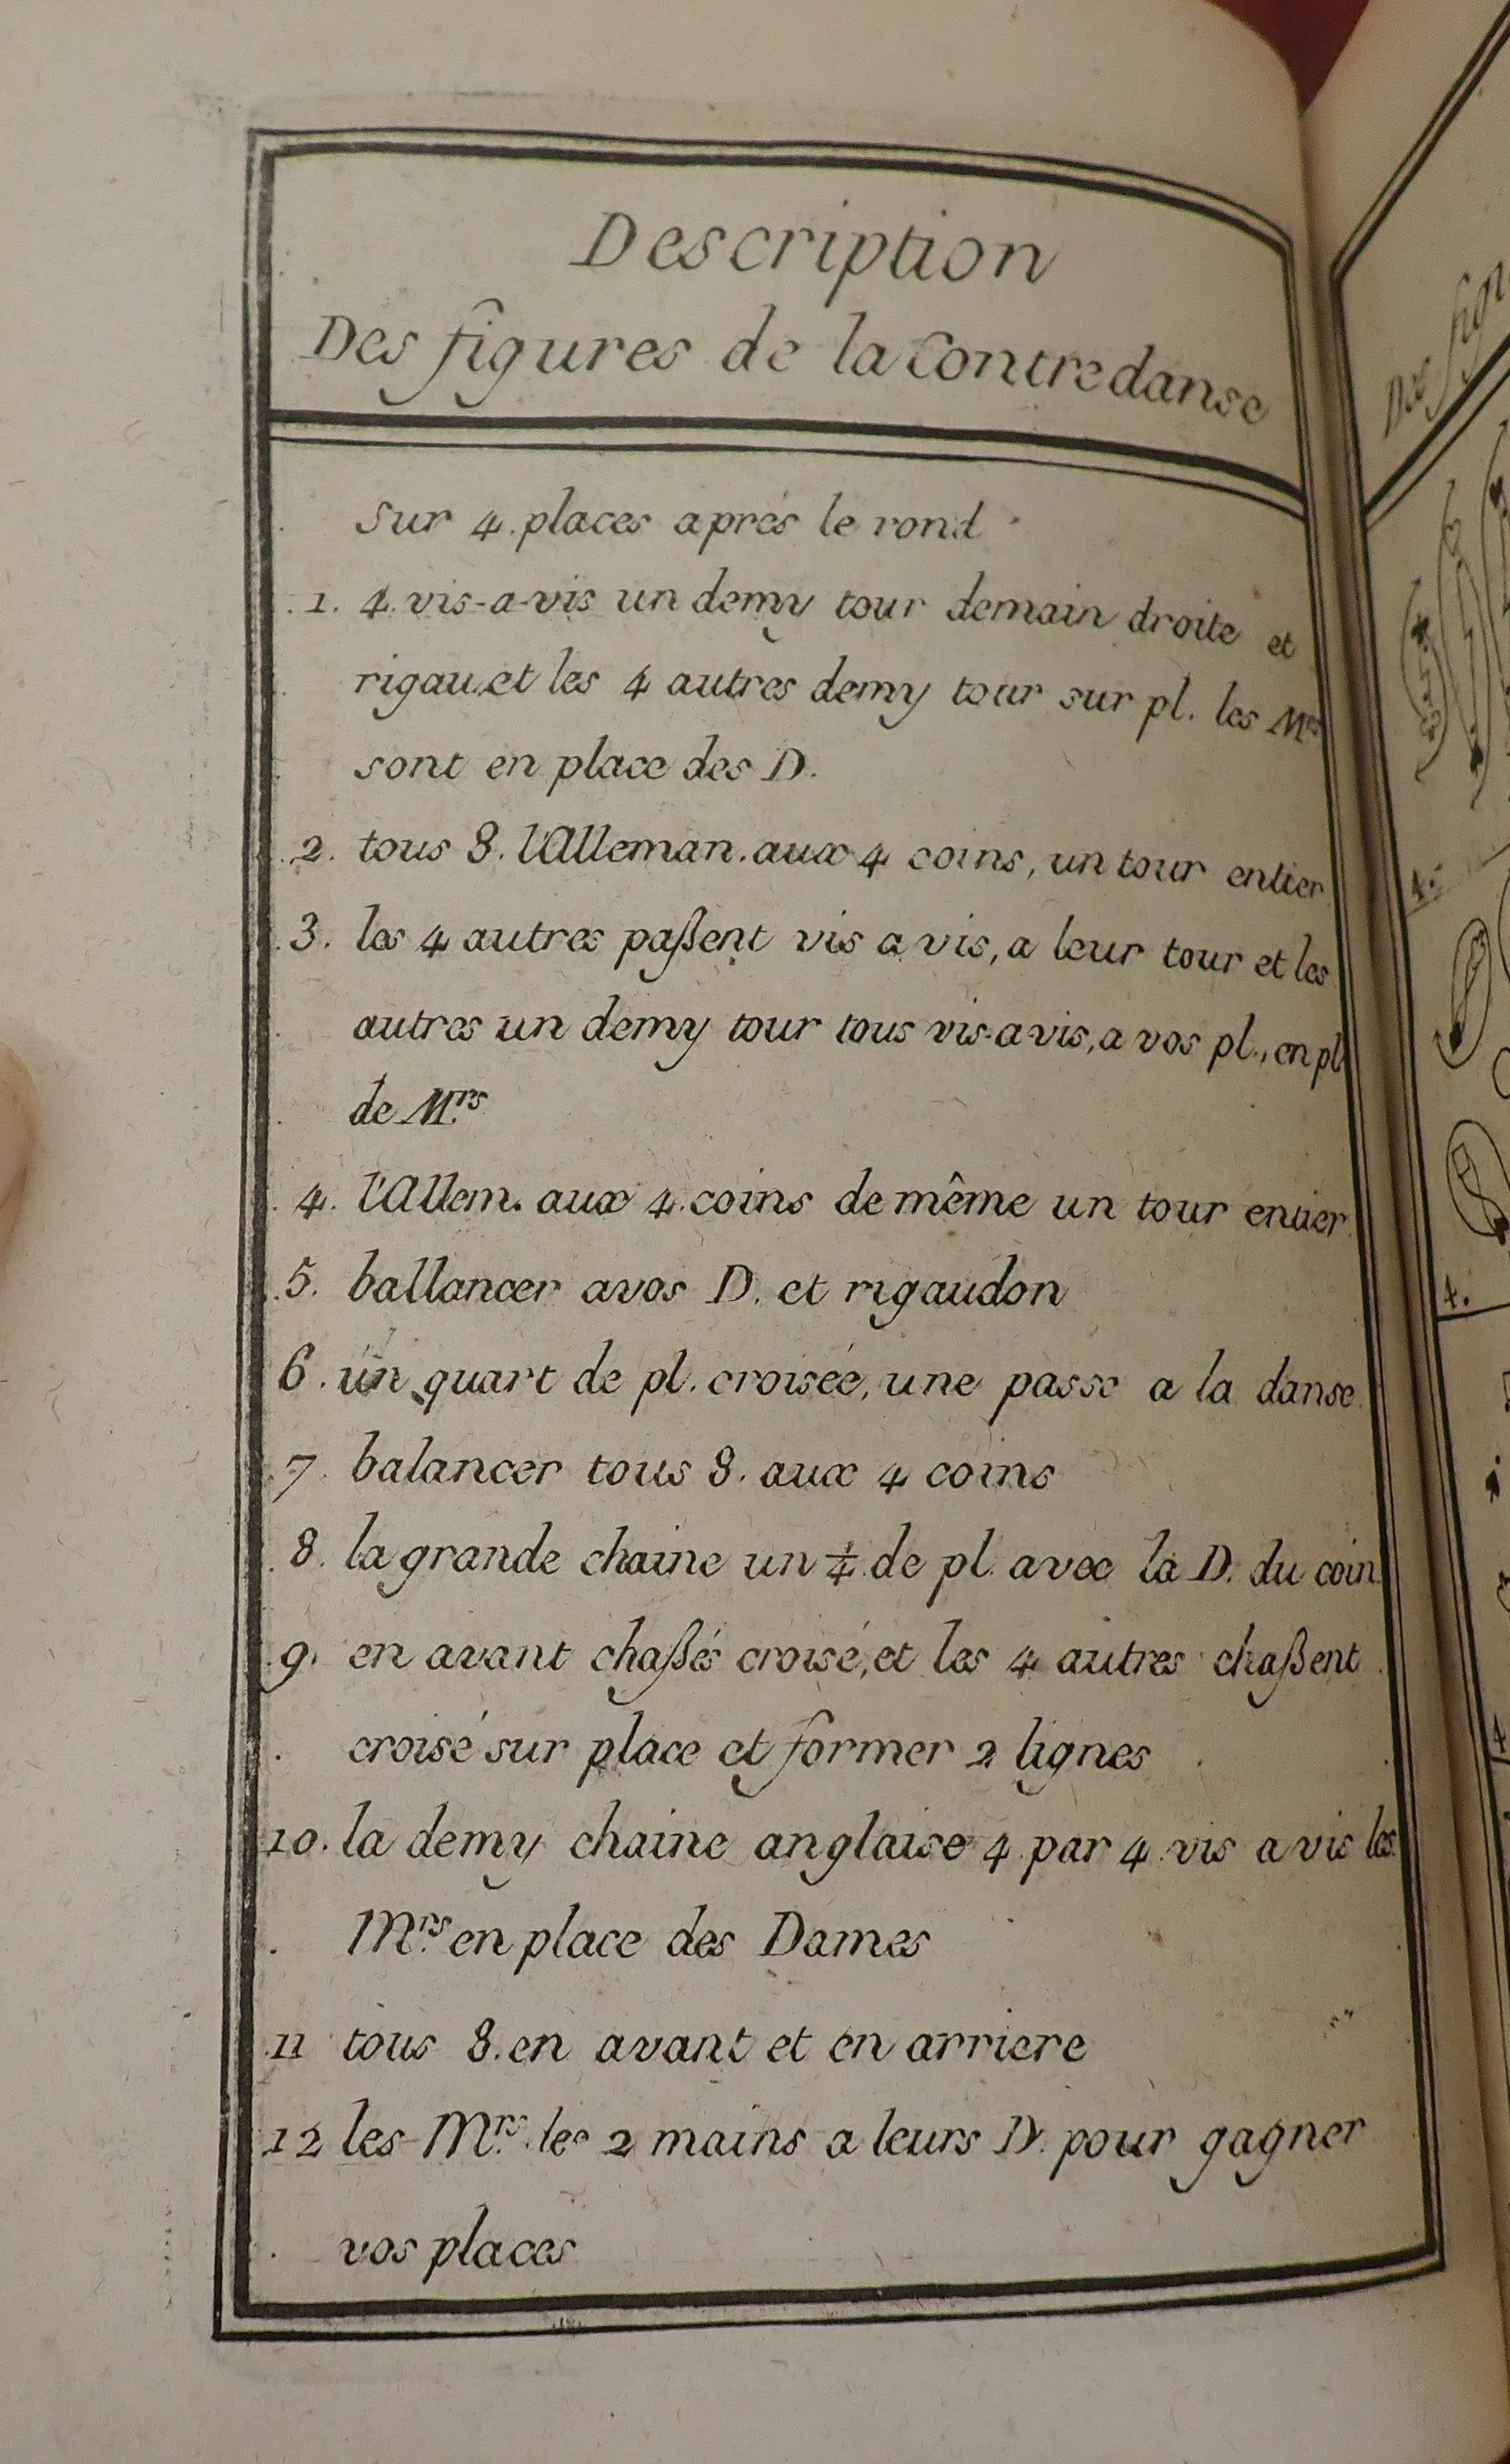 Description
Des figures de la Contredanse
Sur 4. places aprés le rond
1. 4. vis-a-vis un demy tour demain droite et
rigau. et les 4 autres demy tour sur pl. les Mrs
sont en place des D.
2. tous 8. l'Alleman. aux 4 coins, un tour entier
3. les 4 autres paßent vis a vis, a leur tour et les
autres un demy tour tous vis-a-vis, a vos pl., en pl.
de Mrs
4. l'Allem. aux 4. coins de même un tour entier
5. ballancer avos D. et rigaudon
6. un quart de pl. croisée, une passe a la danse.
7 balancer tous 8. aux 4 coins
8. la grande chaine un 1/4 de pl. avec la D. du coin
9. en avant chaßés croisé, et les 4 autres chaßent
croisé sur place et former 2 lignes
10. la demy chaine anglaise 4 par 4 vis a vis les
Mrs en place des Dames
11 tous 8. en avant et en arriere
12 les Mrs. les 2 mains a leurs D. pour gagner
vos places
4.
4.